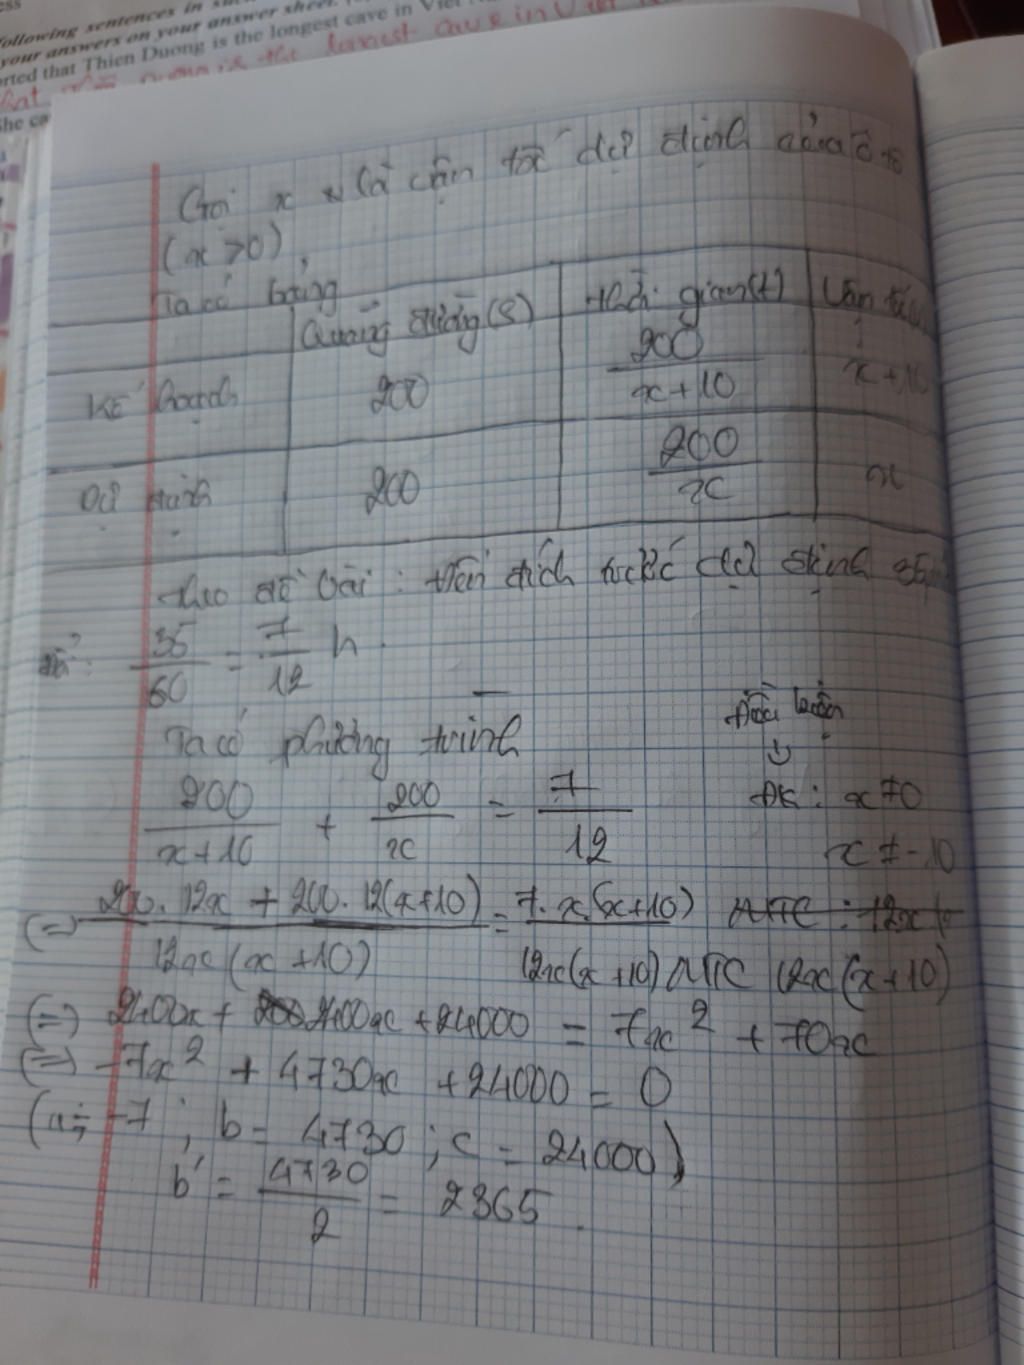 following sentences in
your answers on your answer sheet.
rted that Thien Duong is the longest cave in Viet
hat Duong is the longest cave in Viet
She ca
Gọi x là vận tốc dự định của ô tô
(x > 0)
Ta có bảng
Quãng đường (S) Thời gian (t) Vận tốc
Kế hoạch 200 200/(x+10) x+10
Dự định 200 200/x x
theo đề bài: đến đích trước dự định
35/60 = 7/12 h.
Ta có phương trình
200/(x+10) + 200/x = 7/12 ĐK: x ≠ 0
x ≠ -10
(=) (200.12x + 200.12(x+10))/(12x(x+10)) = (7.x.(x+10))/(12x(x+10)) MTC 12x(x+10)
(=) 2400x + 2400x + 24000 = 7x² + 70x
(=) -7x² + 4730x + 24000 = 0
(a = -7; b = 4730; c = 24000)
b' = 4730/2 = 2365.